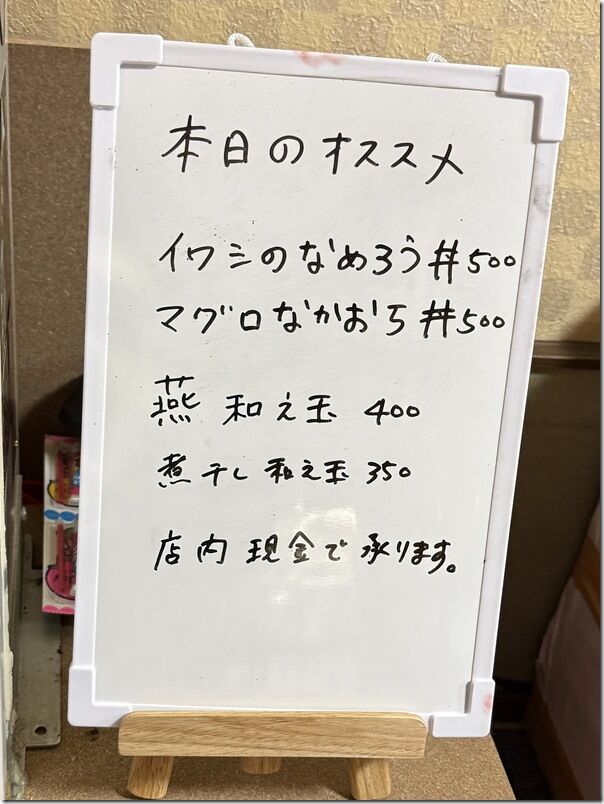 本日のオススメ
イワシのなめろう丼500
マグロなかおち丼500
燕 和え玉 400
煮干し 和え玉 350
店内 現金で 承ります。